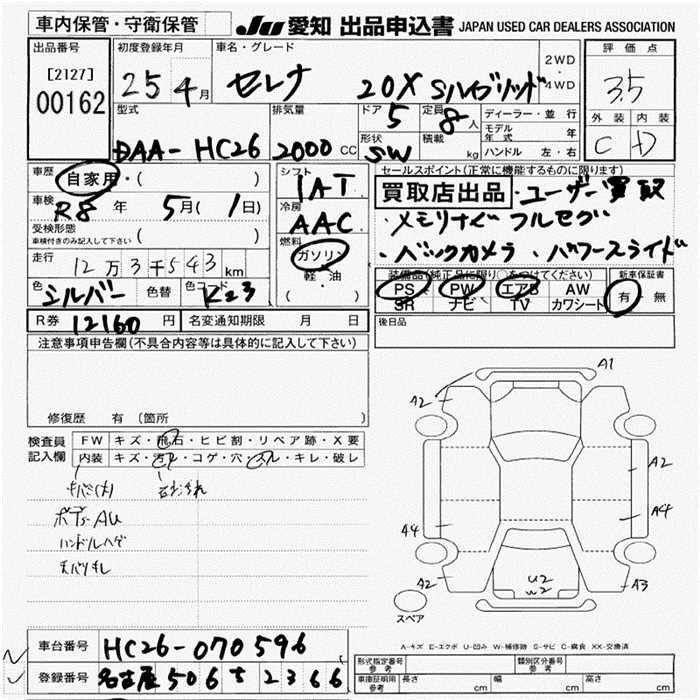 車内保管・守衛保管 JU 愛知 出品申込書 JAPAN USED CAR DEALERS ASSOCIATION
出品番号 初度登録年月 車名・グレード 2WD・4WD 評価点
[2127]
00162 25 4月 セレナ 20X Sハイブリッド 3.5
型式 排気量 ドア 5 定員 8人 ディーラー・並行 外装 内装
モデル年式 年
DAA-HC26 2000CC 形状 SW 積載 kg ハンドル 左・右 C D
車歴 自家用・( ) シフト IAT セールスポイント(正常に機能するものに限ります)
買取店出品・ユーザー買取
車検 R8年 5月( 1日) 冷房 AAC ・メモリナビ フルセグ
受検形態 車検付きのみ記入して下さい ( ) 燃料 ガソリン ・バックカメラ・パワースライド
走行 12万3千543km 軽・油 装備品(純正品に限り○をつけてください) 新車保証書
色 シルバー 色替 色コード K23 ( ) PS PW エアB AW 有・無
SR ナビ TV カワシート
R券 12160円 名変通知期限 月 日 後日品
注意事項申告欄(不具合内容等は具体的に記入して下さい)
修復歴 有 (箇所
検査員記入欄 FW キズ・飛石・ヒビ割・リペア跡・X要
内装 キズ・汚レ・コゲ・穴・スレ・キレ・破レ
ボデーAU
A1
A2
A2
A4
A4
A2
U2
W2
A3
スペア
A-キズ E-エクボ U-凹み W-補修跡 S-サビ C-腐食 XX-交換済
車台番号 HC26-070596
登録番号 名古屋 506 す 2366
形式指定番号 参考 類別区分番号 参考
車庫証明用 参考 長さ cm 幅 cm 高さ cm